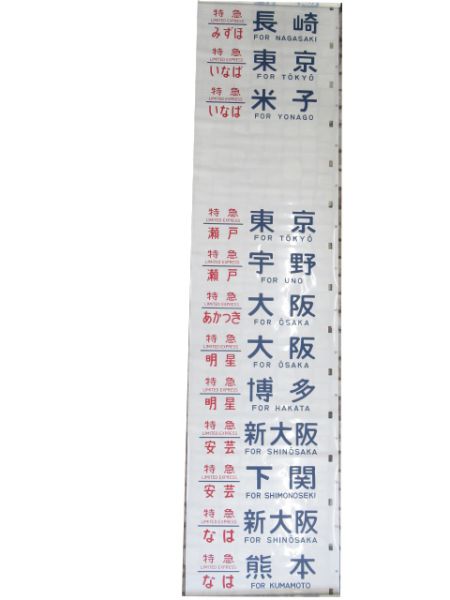 特急 長崎
LIMITED EXPRESS
みずほ FOR NAGASAKI
特急 東京
LIMITED EXPRESS
いなば FOR TŌKYŌ
特急 米子
LIMITED EXPRESS
いなば FOR YONAGO
特急 東京
LIMITED EXPRESS
瀬戸 FOR TŌKYŌ
特急 宇野
LIMITED EXPRESS
瀬戸 FOR UNO
特急 大阪
LIMITED EXPRESS
あかつき FOR ŌSAKA
特急 大阪
LIMITED EXPRESS
明星 FOR ŌSAKA
特急 博多
LIMITED EXPRESS
明星 FOR HAKATA
特急 新大阪
LIMITED EXPRESS
安芸 FOR SHINŌSAKA
特急 下関
LIMITED EXPRESS
安芸 FOR SHIMONOSEKI
特急 新大阪
LIMITED EXPRESS
なは FOR SHINŌSAKA
特急 熊本
LIMITED EXPRESS
なは FOR KUMAMOTO